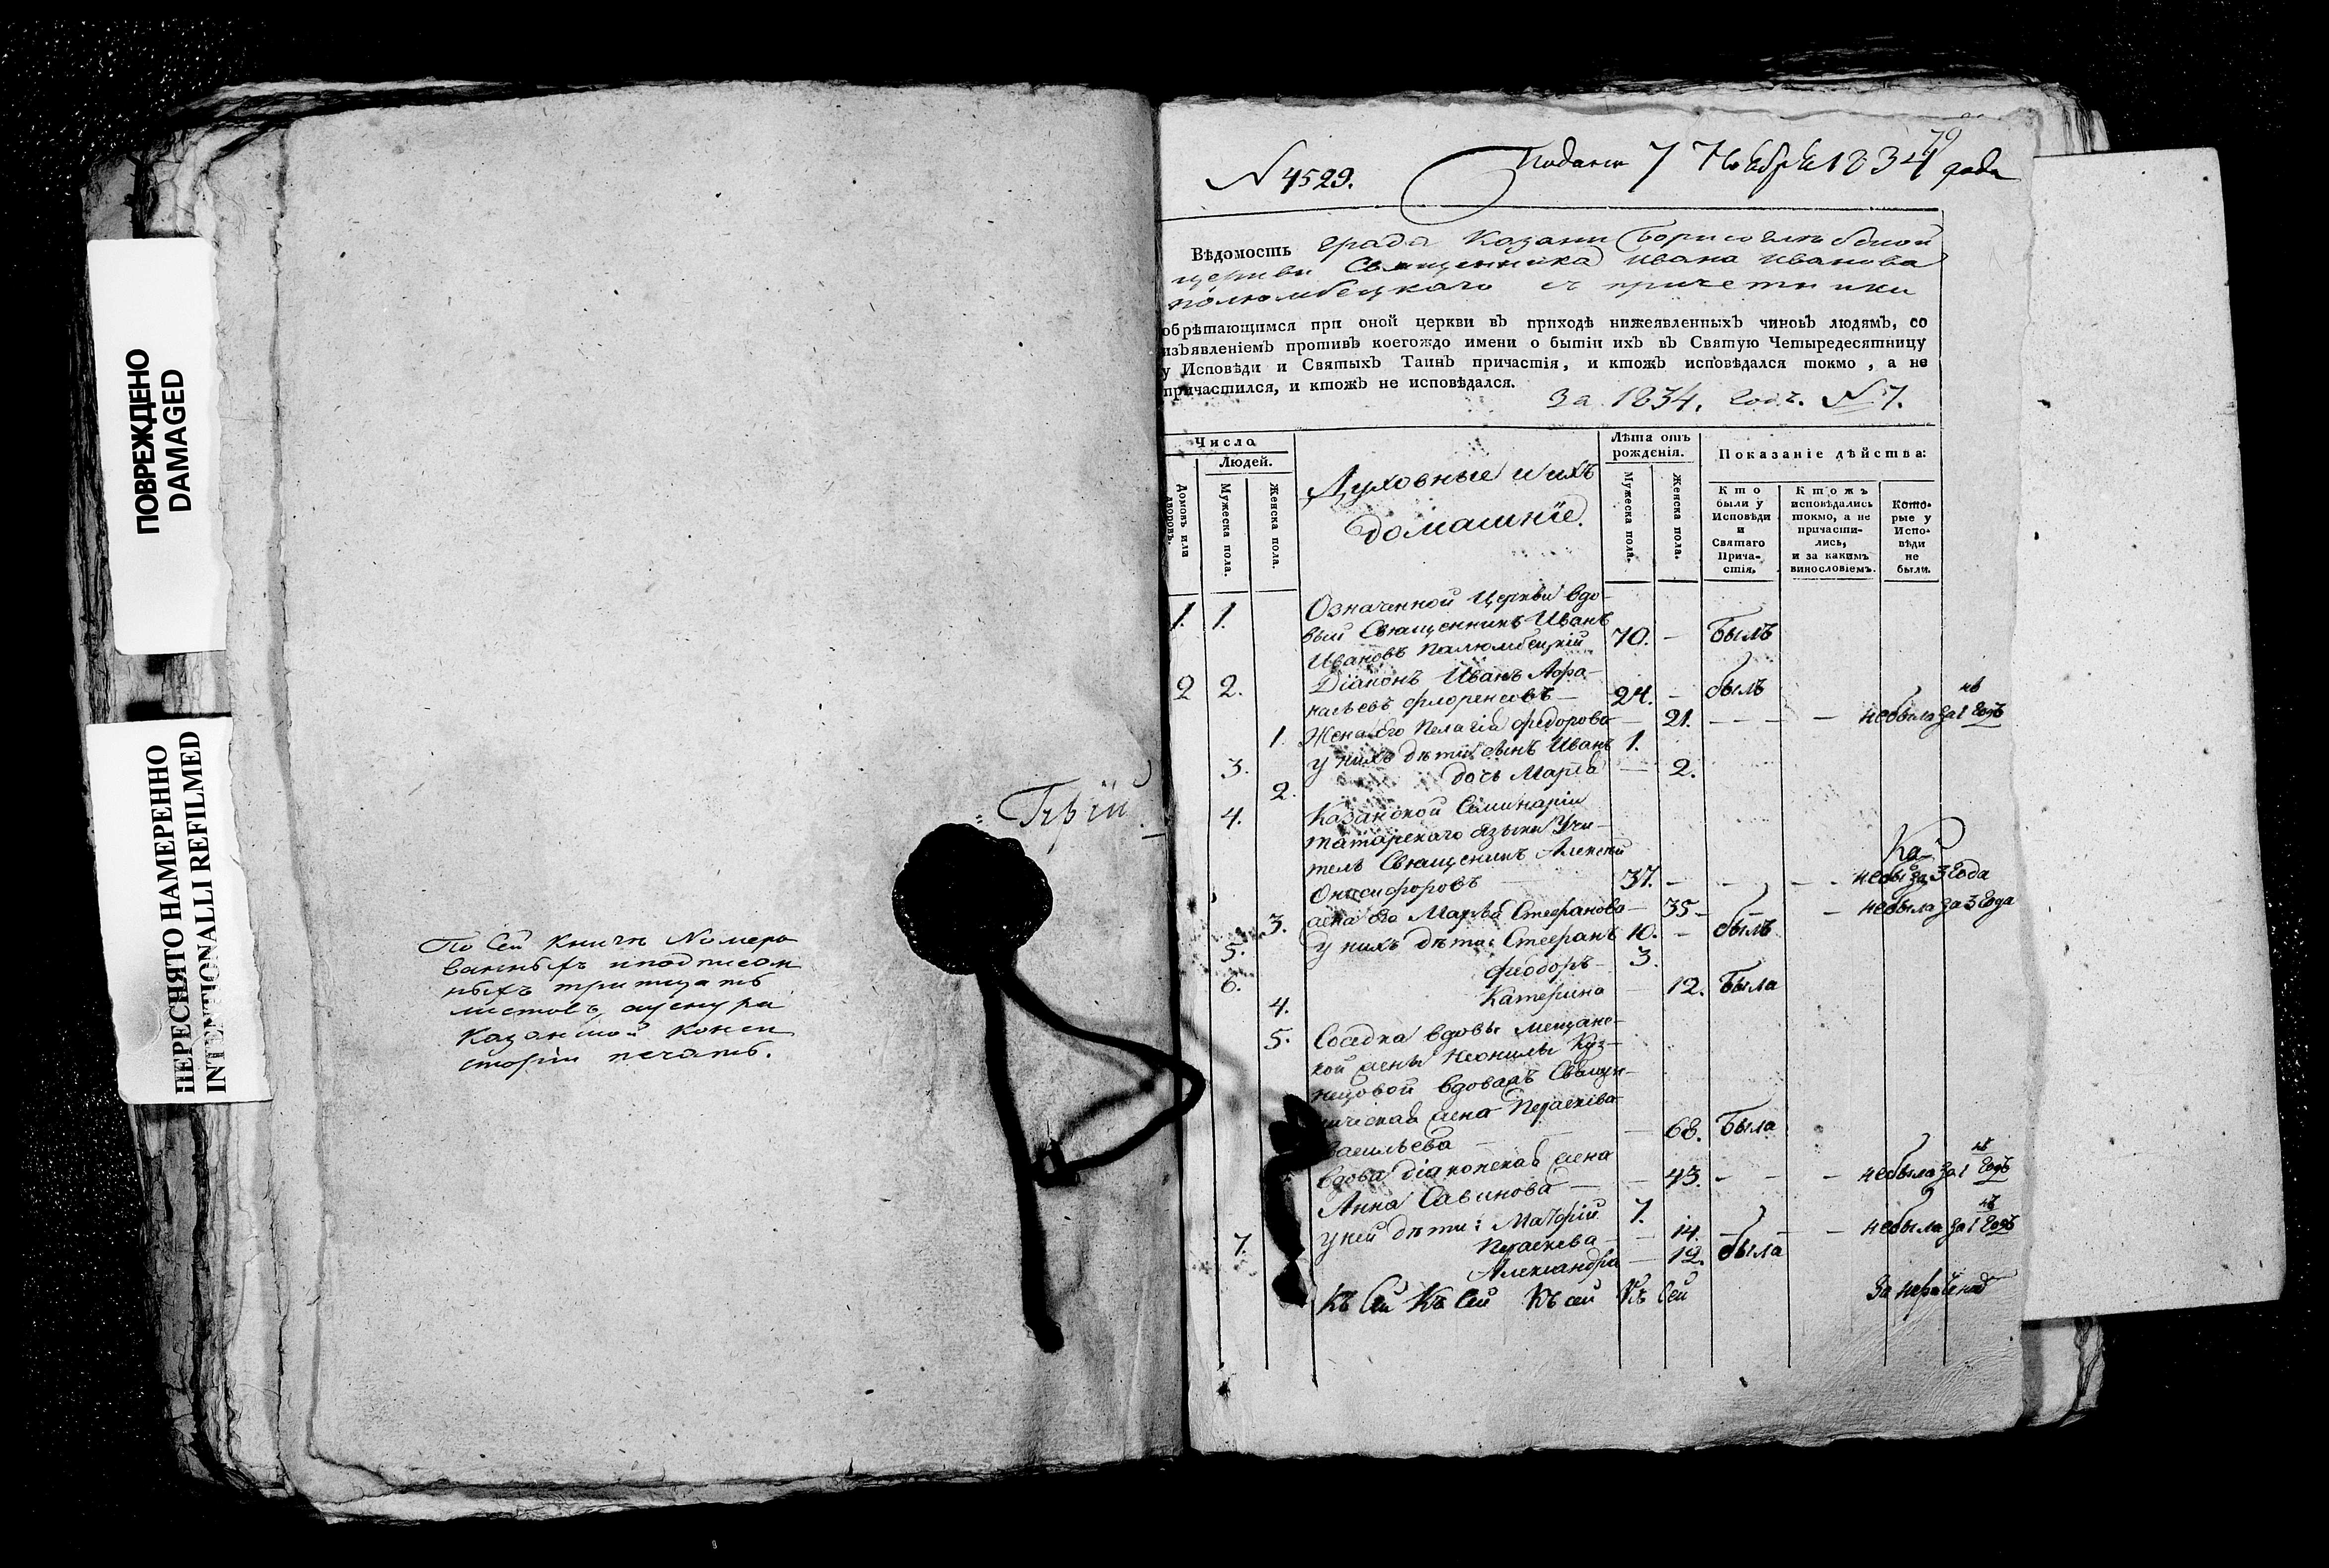 ПОВРЕЖДЕНО
DAMAGED
ПЕРЕСНЯТО НАМЕРЕННО
INTENTIONALLI REFILMED
По Сей Книгѣ Номеро
ванныхъ и подписан
ныхъ тритцать
листовъ, а у шнура
Казанской Конси
сторіи печать.
N 4529.
Подана 7 Ноября 1834 года
Вѣдомость града Казани Борисоглѣбской
церкви Священника Ивана Иванова
Полюмбецкаго съ причетники
обрѣтающимся при оной церкви въ приходѣ нижеявленныхъ чиновъ людямъ, со
изъявленіемъ противъ коегождо имени о бытіи ихъ въ Святую Четыредесятницу
у Исповѣди и Святыхъ Таинъ причастія, и ктожъ исповѣдался токмо, а не
причастился, и ктожъ не исповѣдался.
За 1834. годъ. N 7.
Число
Людей.
Домовъ или дворовъ.
Мужеска пола.
Женска пола.
Духовные и ихъ
домашніе.
Лѣта отъ
рожденія.
Мужеска пола.
Женска пола.
Показаніе дѣйства:
Кто
были у
Исповѣди
и
Святаго
Прича-
стія.
Ктожъ
исповѣдались
токмо, а не
причасти-
лись,
и за какимъ
винословіемъ.
Кото-
рые у
Испо-
вѣди
не
были.
1. 1. Означенной Церкви вдо-
вый Священникъ Иванъ
Ивановъ Палюмбецкій 70. - Былъ
2 2. Діаконъ Иванъ Афа-
насьевъ Флоренсовъ — 24. - былъ
1. Жена его Пелагія Федорова — 21. - - - - небыла за 1 годъ
3. у нихъ дѣти: сынъ Иванъ 1.
2. дочь Марія — 2.
4. Казанской Семинаріи
татарскаго языка Учи-
тель Священникъ Алексей
Онисифоровъ 37. - - - - небы за 3 года
3. жена его Марѳа Стефанова — 35 - - небыла за 3 года
5. у нихъ дѣти: Стефанъ 10. - былъ
6. Федоръ 3.
4. Катерина — 12. Была
5. Соседка вдовы мещанс-
кой жены Неонилы Куз-
нецовой вдовая Священ-
ническая жена Параскева
Васильева — 68. Была
вдова діаконская жена
Анна Савинова — 43. - - - небыла за 1 годъ
7. у ней дѣти: 7.
Параскева — 14. - - - небыла за 1 годъ
Александра — 12. была
Къ Сей Къ Сей Къ сей Къ Сей